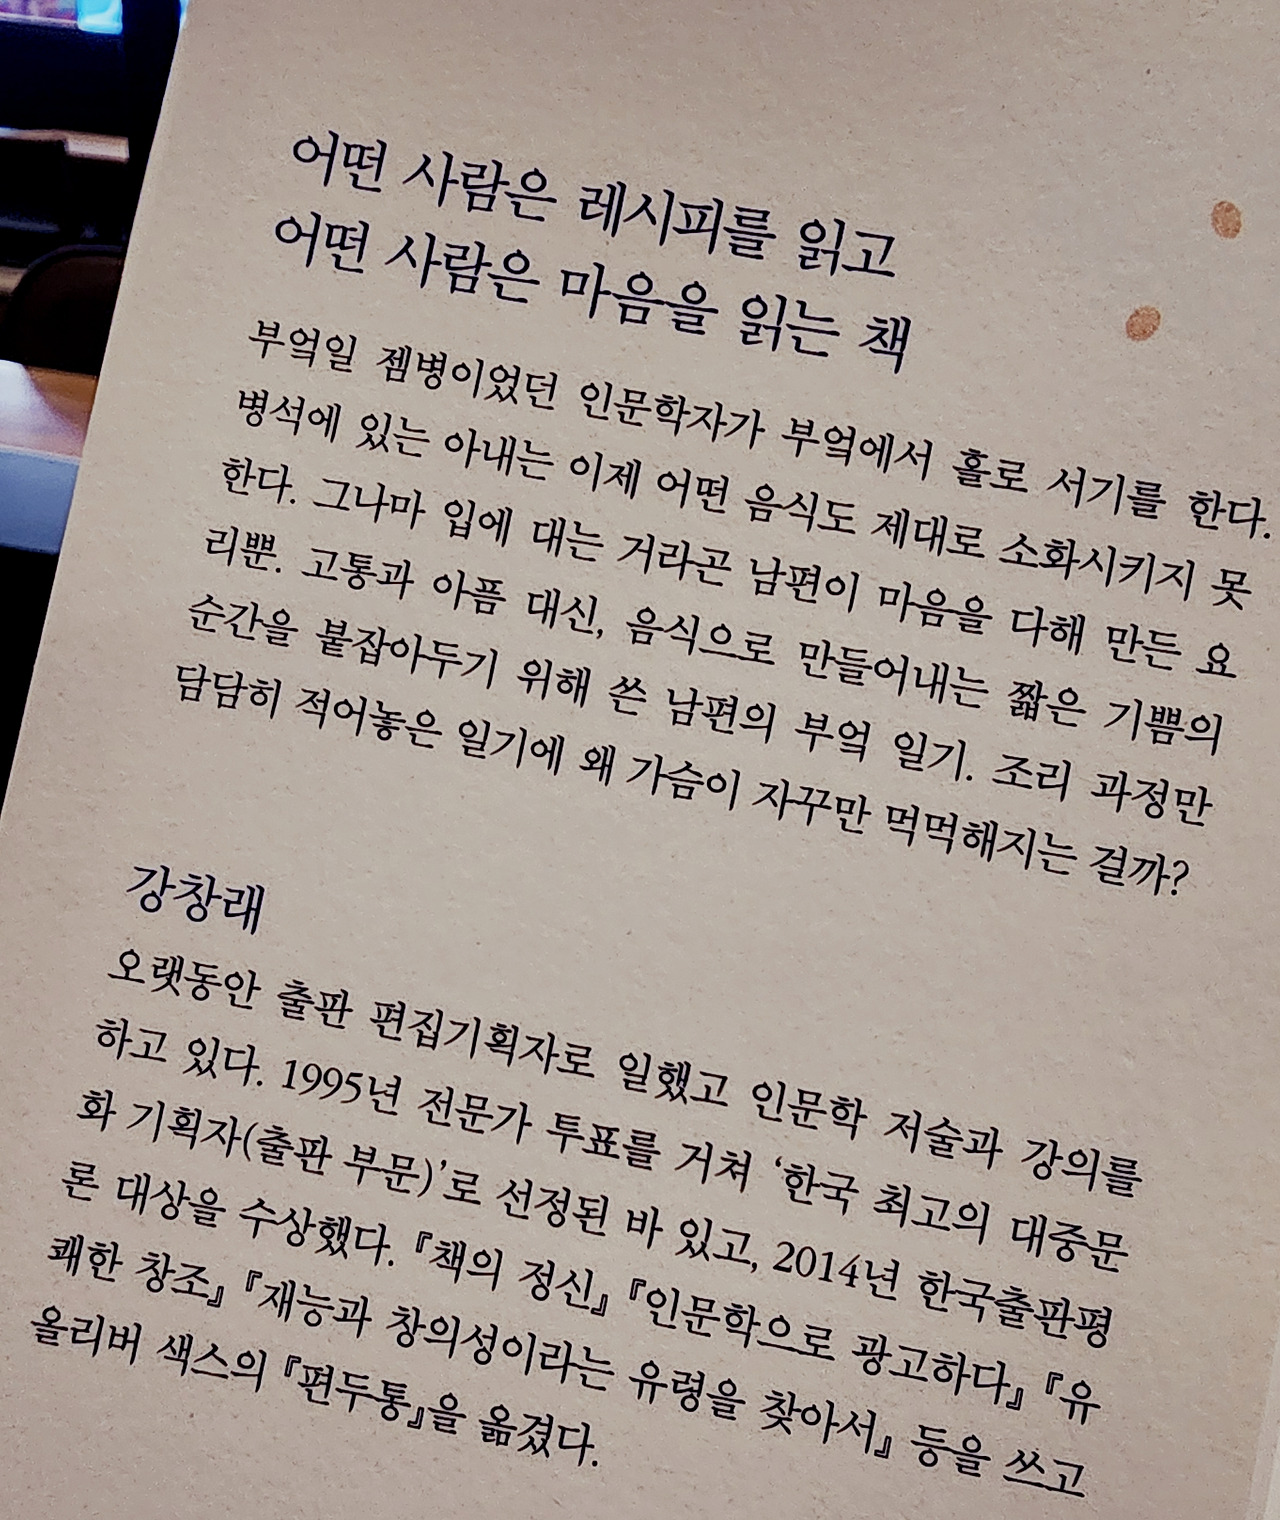 어떤 사람은 레시피를 읽고
어떤 사람은 마음을 읽는 책
부엌일 젬병이었던 인문학자가 부엌에서 홀로 서기를 한다.
병석에 있는 아내는 이제 어떤 음식도 제대로 소화시키지 못
한다. 그나마 입에 대는 거라곤 남편이 마음을 다해 만든 요
리뿐. 고통과 아픔 대신, 음식으로 만들어내는 짧은 기쁨의
순간을 붙잡아두기 위해 쓴 남편의 부엌 일기. 조리 과정만
담담히 적어놓은 일기에 왜 가슴이 자꾸만 먹먹해지는 걸까?
강창래
오랫동안 출판 편집기획자로 일했고 인문학 저술과 강의를
하고 있다. 1995년 전문가 투표를 거쳐 ‘한국 최고의 대중문
화 기획자(출판 부문)’로 선정된 바 있고, 2014년 한국출판평
론 대상을 수상했다. 『책의 정신』 『인문학으로 광고하다』 『유
쾌한 창조』 『재능과 창의성이라는 유령을 찾아서』 등을 쓰고
올리버 색스의 『편두통』을 옮겼다.